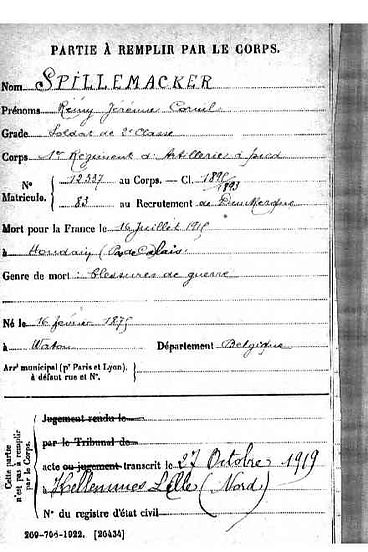 PARTIE À REMPLIR PAR LE CORPS.
Nom SPILLEMACKER
Prénoms Rémy Jérémie Cornil
Grade Soldat de 2e Classe
Corps 1er Régiment d'Artillerie à pied
No Matricule. 12337 au Corps. — Cl. 1895/1893
83 au Recrutement de Dunkerque
Mort pour la France le 16 Juillet 1915
à Houdain (Pas de Calais)
Genre de mort : blessures de guerre
Né le 16 février 1875
à Watou Département Belgique
Arrt municipal (pr Paris et Lyon),
à défaut rue et No.
Cette partie n'est pas à remplir par le Corps.
Jugement rendu le
par le Tribunal de
acte ou jugement transcrit le 27 Octobre 1919
à Hellemmes Lille (Nord)
No du registre d'état civil
269-708-1922. [26434]